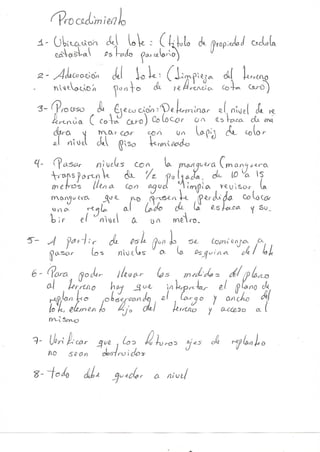 Procedimiento
1- Ubicación del lote: (titulo de propiedad cedula
catastral estado parcelario)
2- Adecuación del lote: (Limpieza del terreno
nivelación punto de referencia cota cero)
3- Proceso de Ejecución: Determinar el nivel de re
ferencia (cota cero) Colocar un estaca de ma
dera y marcar con un lapiz de color
el nivel del piso terminado
4- Pasar niveles con la manguera (manguera
transparente de 1/2 pulgada, de 10 a 15
metros llena con agua limpia revisar la
manguera que no presente perdida colocar
una regla al lado de la estaca y su.
bir el nivel a un metro.
5- A partir de este punto se comienza a
pasar los niveles a la esquina del lote
6- Para poder llevar las medidas del plano
al terreno hay que interpretar el plano de
replanteo observando el largo y ancho del
lote, elemento fijo del terreno y acceso al
mismo
7- Verificar que los futuros ejes de replanteo
no sean obstruidos
8- todo debe quedar a nivel